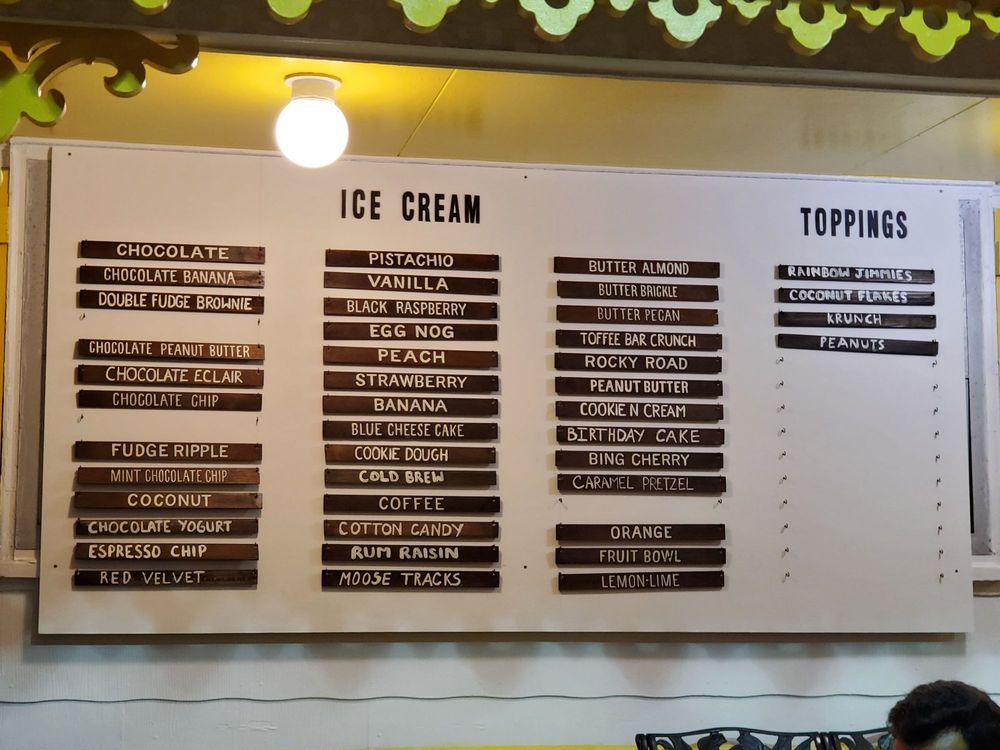 ICE CREAM
CHOCOLATE
CHOCOLATE BANANA
DOUBLE FUDGE BROWNIE
CHOCOLATE PEANUT BUTTER
CHOCOLATE ECLAIR
CHOCOLATE CHIP
FUDGE RIPPLE
MINT CHOCOLATE CHIP
COCONUT
CHOCOLATE YOGURT
ESPRESSO CHIP
RED VELVET
PISTACHIO
VANILLA
BLACK RASPBERRY
EGG NOG
PEACH
STRAWBERRY
BANANA
BLUE CHEESE CAKE
COOKIE DOUGH
COLD BREW
COFFEE
COTTON CANDY
RUM RAISIN
MOOSE TRACKS
BUTTER ALMOND
BUTTER BRICKLE
BUTTER PECAN
TOFFEE BAR CRUNCH
ROCKY ROAD
PEANUT BUTTER
COOKIE N CREAM
BIRTHDAY CAKE
BING CHERRY
CARAMEL PRETZEL
ORANGE
FRUIT BOWL
LEMON-LIME
TOPPINGS
RAINBOW JIMMIES
COCONUT FLAKES
KRUNCH
PEANUTS